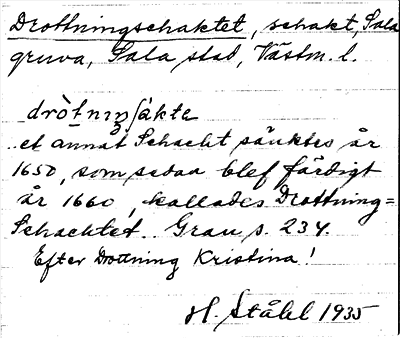 Drottningschaktet, schakt, Sala
gruva, Sala stad, Västm. l.
dròtniŋʃákte
et annat Schacht sänktes år
1650, som sedan blef färdigt
år 1660, kallades Drottning=
Schachtet. Grau s. 234.
Efter Drottning Kristina!
H. Ståhl 1935